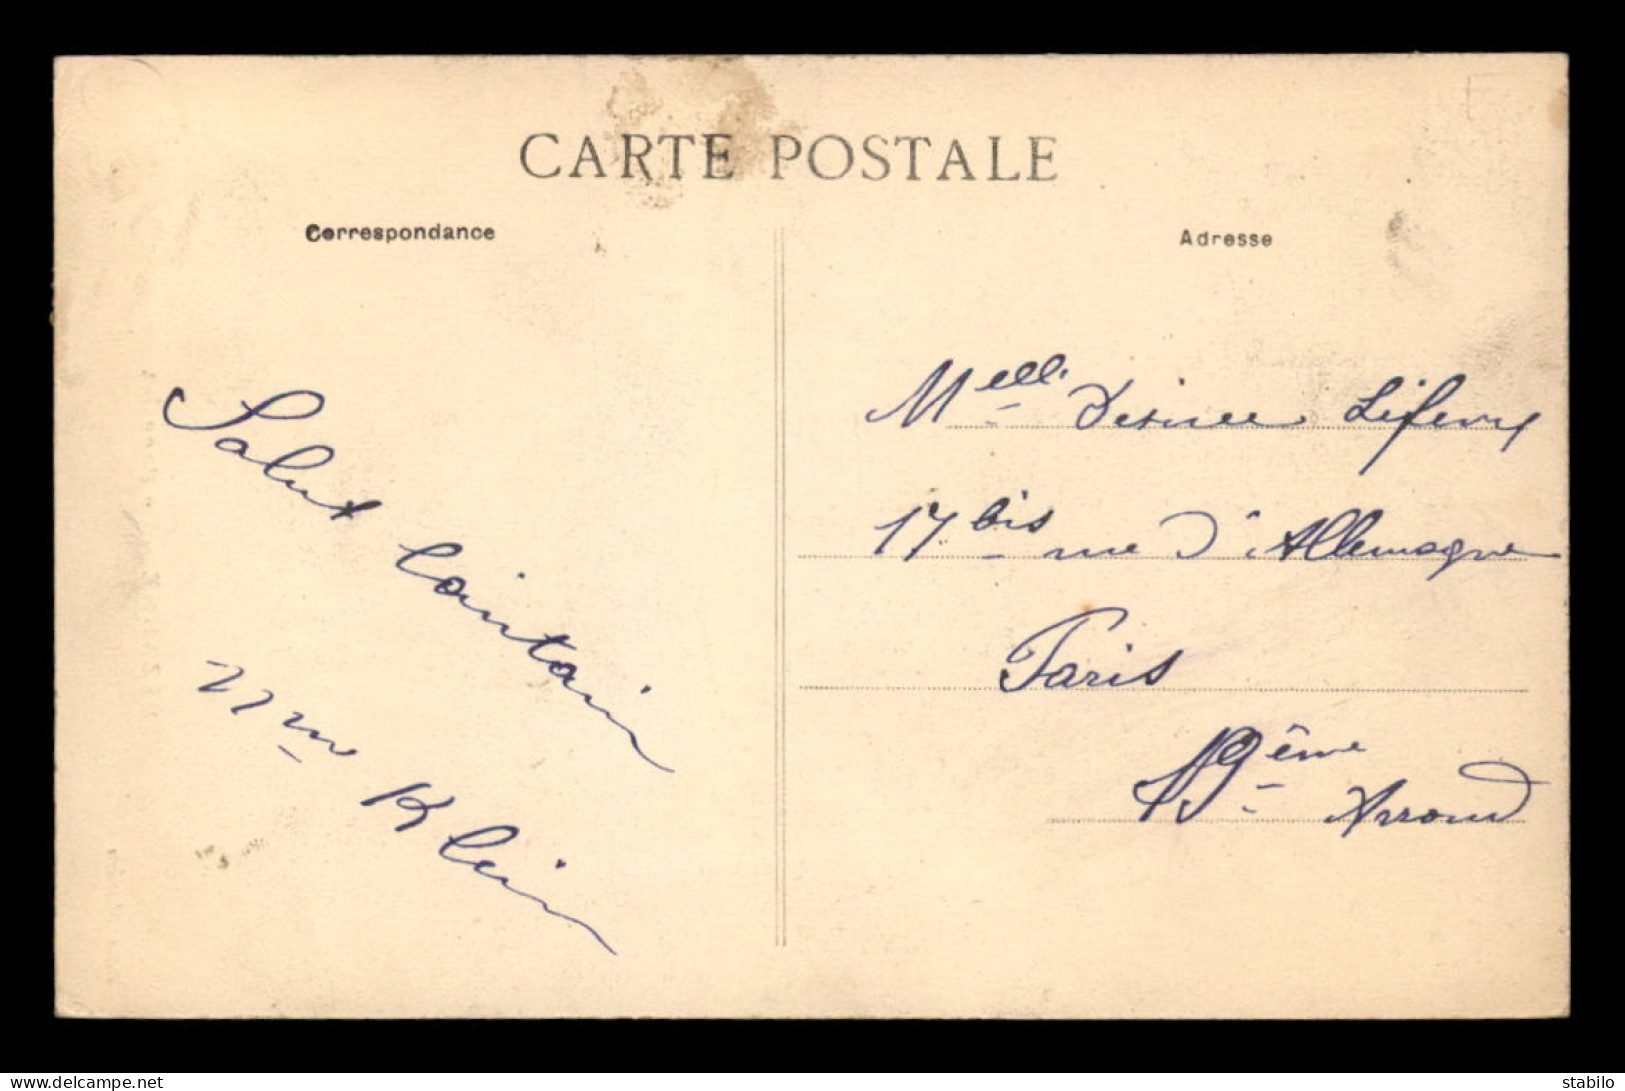 CARTE POSTALE
Correspondance
Adresse
Salut lointain
Mme Klein
Melle Désirée Lefevre
17 bis rue d'Allemagne
Paris
19ème Arrond
www.delcampe.net
stabilo